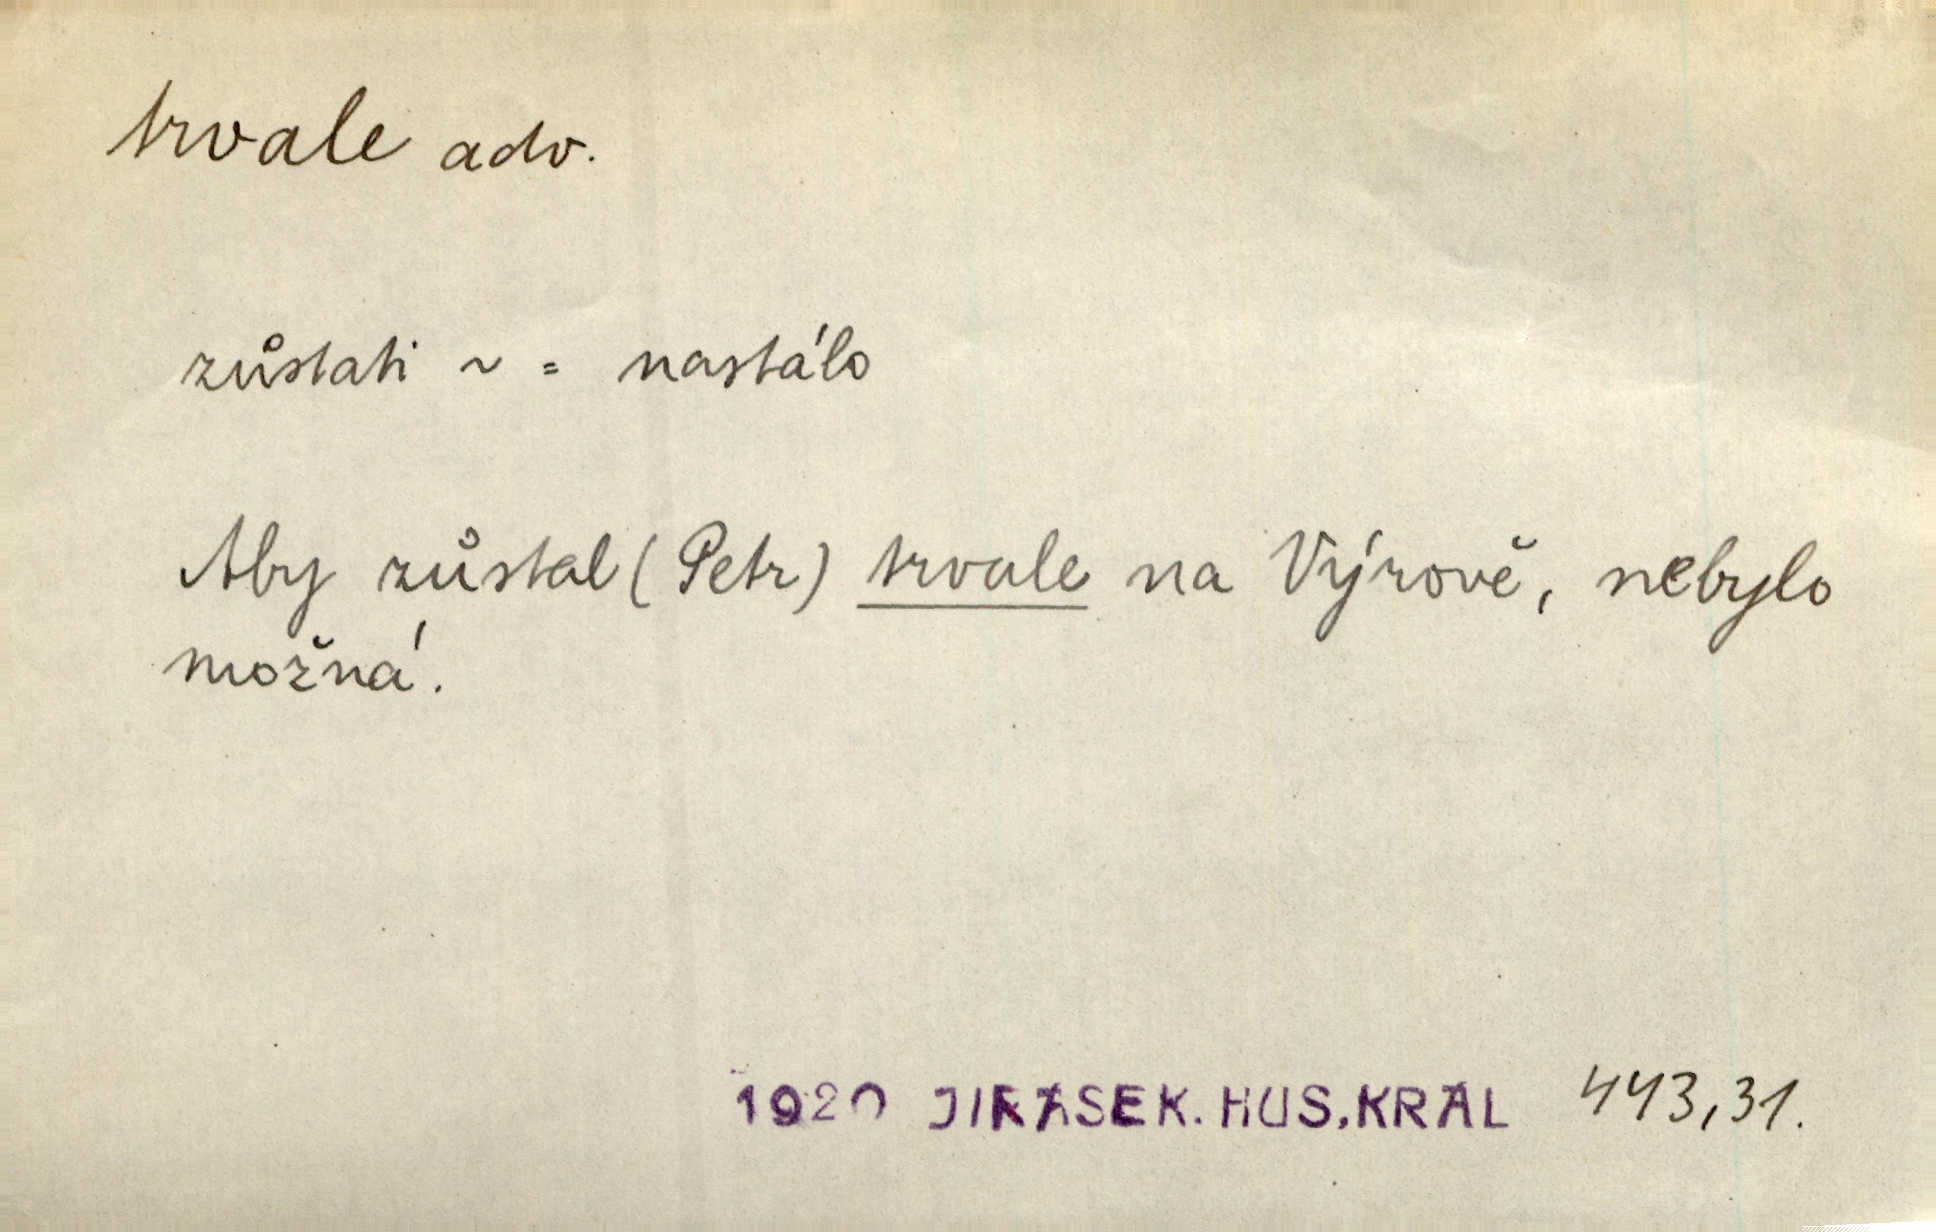 trvale adv.
zůstati ~ = nastálo
Aby zůstal (Petr) trvale na Výrově, nebylo
možná.
1920 JIRÁSEK. HUS. KRÁL 443,31.